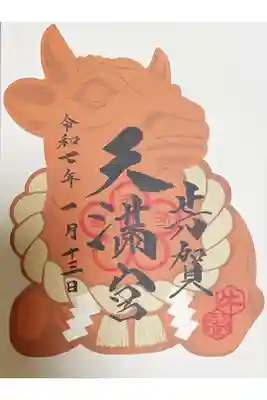 賀
天満宮
令和七年一月十三日